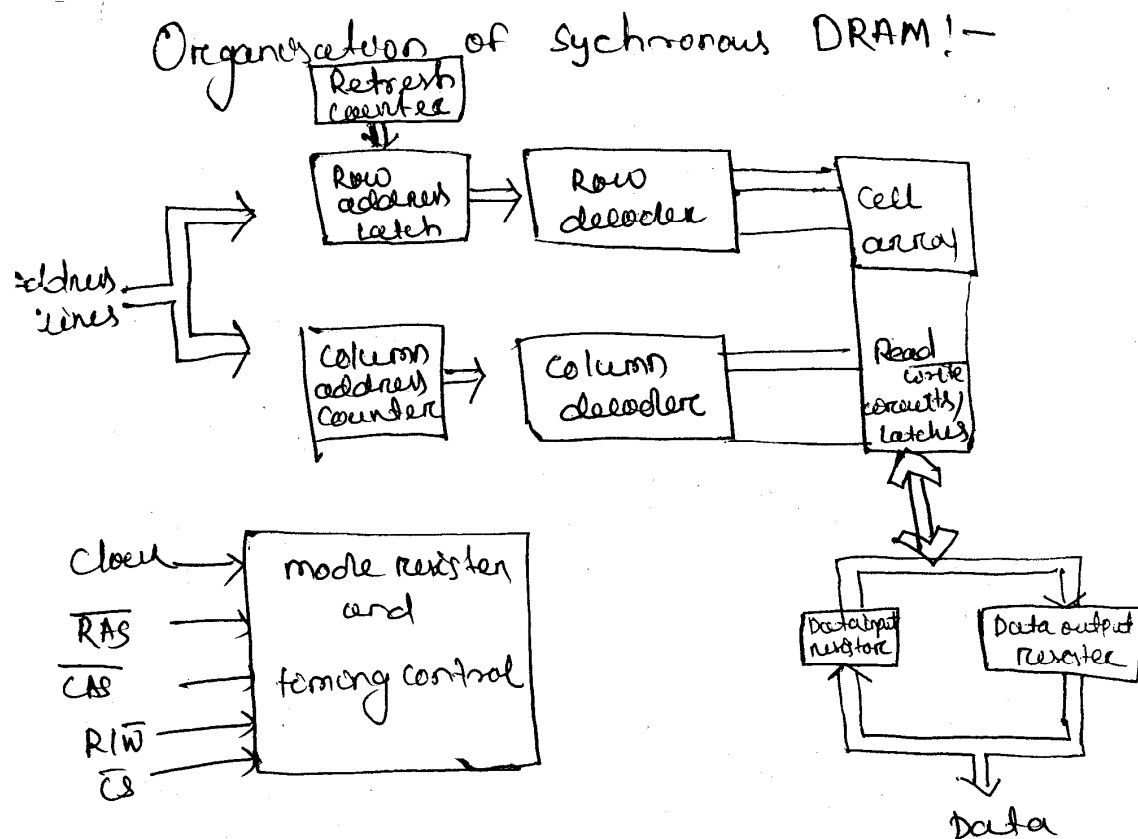 Organisation of Sychronous DRAM!-
Refresh
counter
Row
address
Latch
Row
decoder
Cell
array
address
lines
Column
address
counter
Column
decoder
Read
write
circuits/
latches
Clock
RAS
CAS
R/W
CS
mode resister
and
timing control
Data input
resistor
Data output
resister
Data